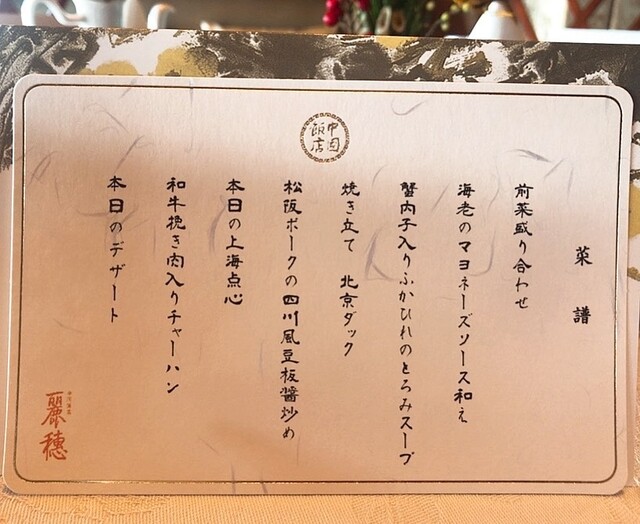 中国
飯店
菜譜
前菜盛り合わせ
海老のマヨネーズソース和え
蟹内子入りふかひれのとろみスープ
焼き立て 北京ダック
松阪ポークの四川風豆板醤炒め
本日の上海点心
和牛挽き肉入りチャーハン
本日のデザート
麗穂